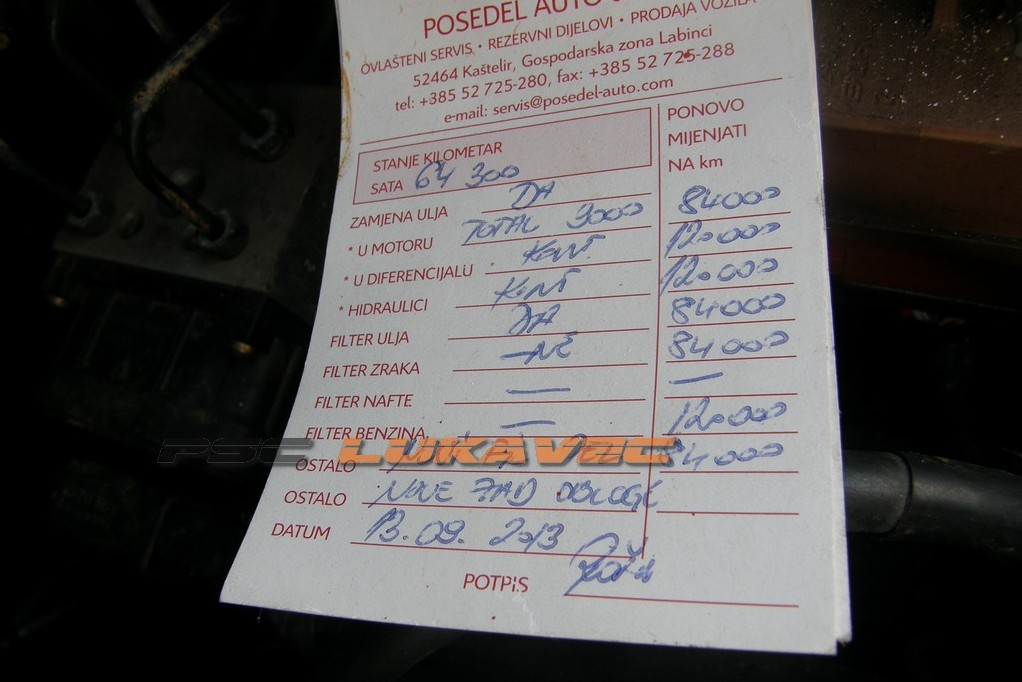 POSEDEL AUTO
OVLAŠTENI SERVIS • REZERVNI DIJELOVI • PRODAJA VOZILA
52464 Kaštelir, Gospodarska zona Labinci
tel: +385 52 725-280, fax: +385 52 725-288
e-mail: servis@posedel-auto.com
STANJE KILOMETAR
SATA 64 300
PONOVO
MIJENJATI
NA km
ZAMJENA ULJA DA 84000
* U MOTORU TOTAL 9000 120000
* U DIFERENCIJALU KONT. 120000
* HIDRAULICI KONT 84000
FILTER ULJA DA 84000
FILTER ZRAKA — NE —
FILTER NAFTE — 120000
FILTER BENZINA — 84000
PSC LUKAVEC
OSTALO
OSTALO NOVE ZAD OBLOGE
DATUM 13.09.2013
POTPIS